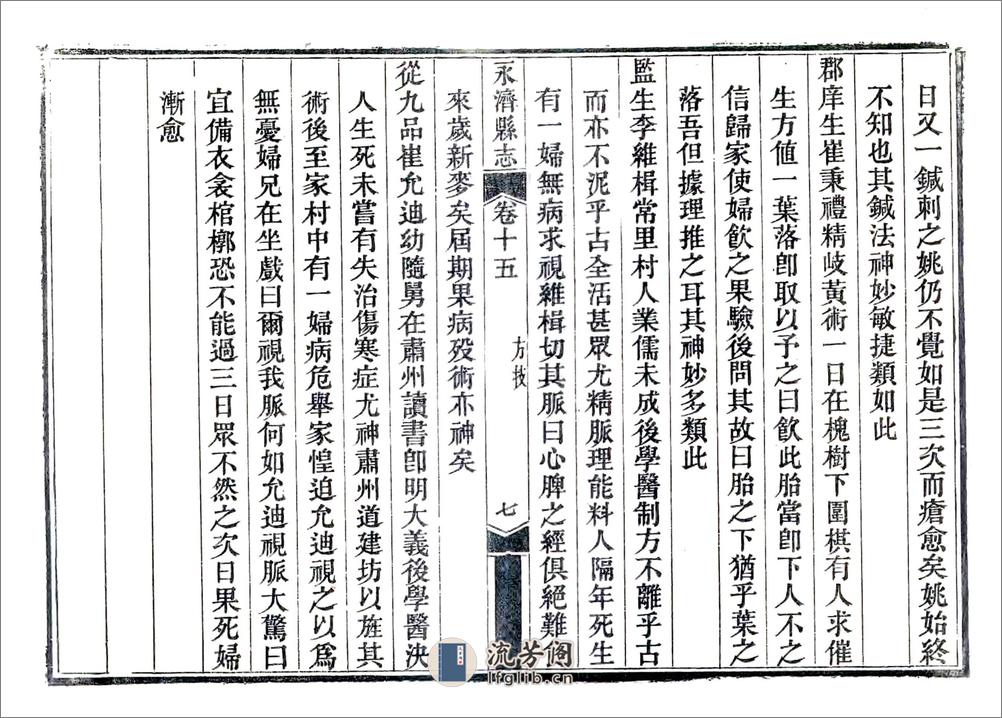 日又一鍼刺之姚仍不覺如是三次而瘡愈矣姚始終
不知也其鍼法神妙敏捷類如此
郡庠生崔秉禮精岐黃術一日在槐樹下圍棋有人求催
生方值一葉落卽取以予之曰飲此胎當卽下人不之
信歸家使婦飲之果驗後問其故曰胎之下猶乎葉之
落吾但據理推之耳其神妙多類此
監生李維楫常里村人業儒未成後學醫制方不離乎古
而亦不泥乎古全活甚眾尤精脈理能料人隔年死生
有一婦無病求視維楫切其脈曰心脾之經俱絕難
永濟縣志
卷十五
方技
七
來歲新麥矣屆期果病歿術亦神矣
從九品崔允迪幼隨舅在肅州讀書卽明大義後學醫決
人生死未嘗有失治傷寒症尤神肅州道建坊以旌其
術後至家村中有一婦病危舉家惶迫允迪視之以爲
無憂婦兄在坐戲曰爾視我脈何如允迪視脈大驚曰
宜備衣衾棺槨恐不能過三日眾不然之次日果死婦
漸愈
流芳阁
lfglib.cn